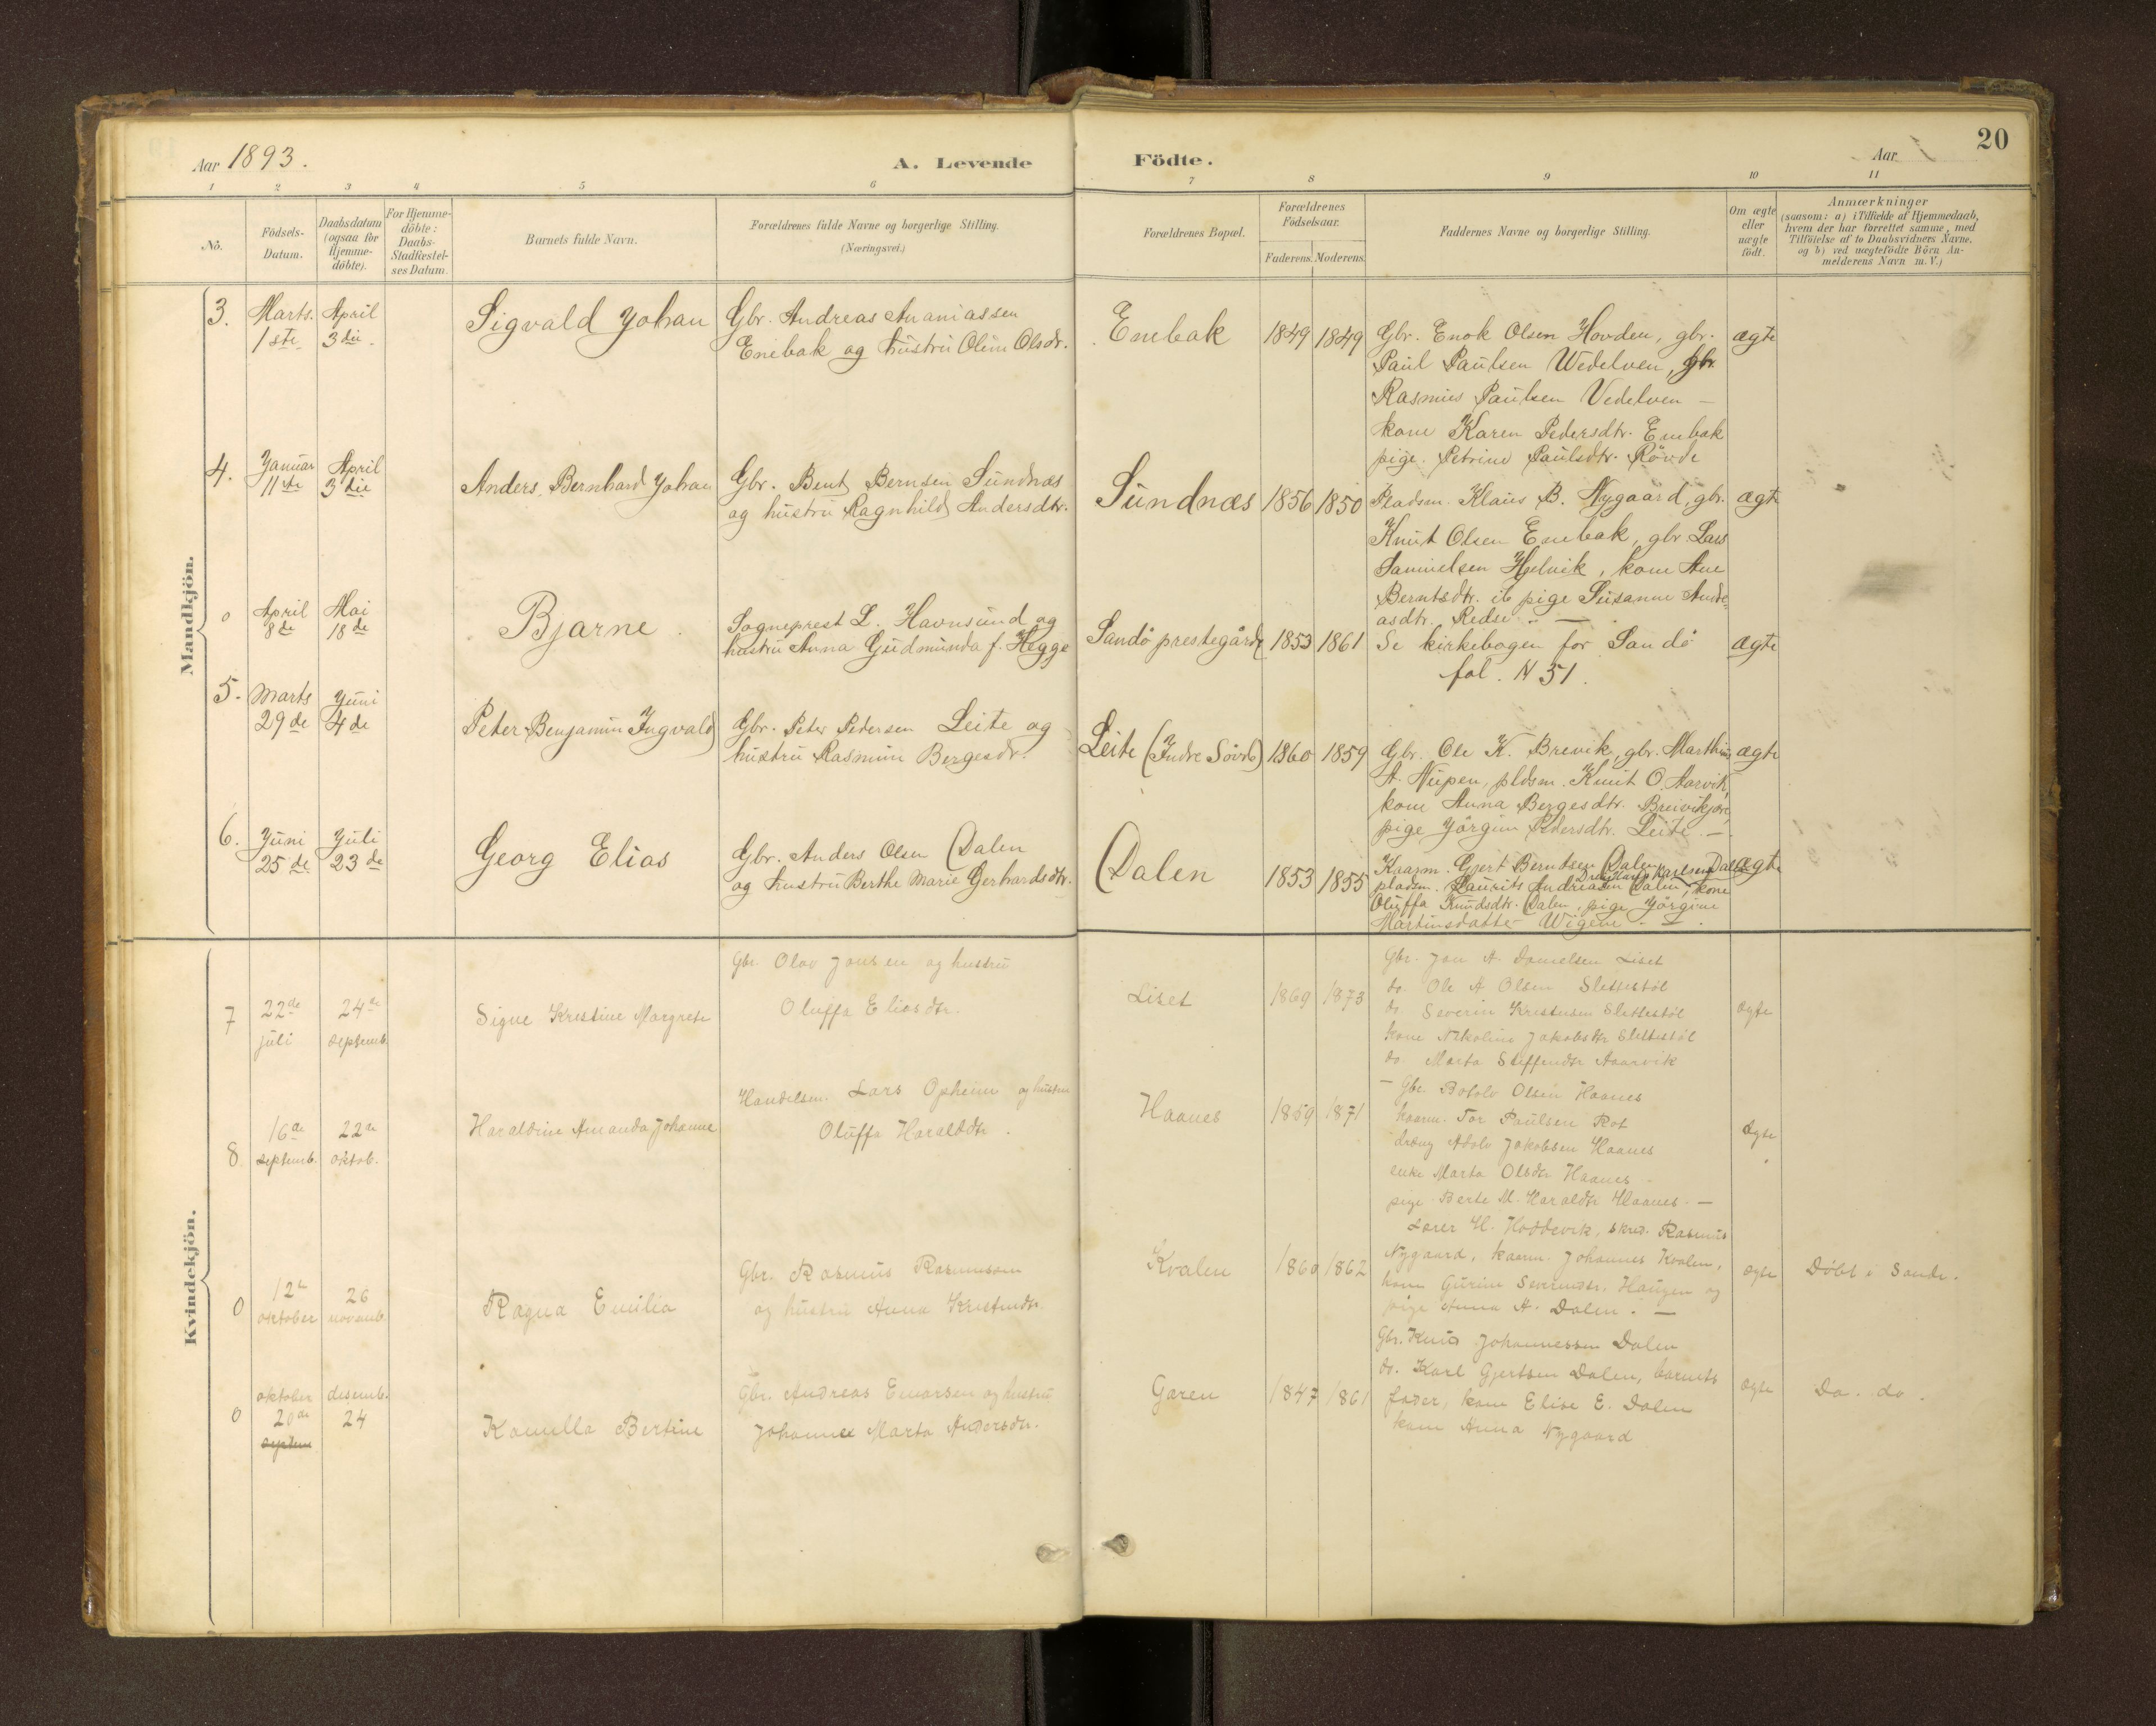 Aar 1893.
A. Levende
Födte.
Aar
20
1 2 3 4 5 6 7 8 9 10 11
Nô.
Födsels-
Datum.
Daabsdatum
(ogsaa för
Hjemme-
döbte).
For Hjemme-
döbte:
Daabs-
Stadfæstel-
ses Datum.
Barnets fulde Navn.
Forældrenes fulde Navne og borgerlige Stilling.
(Næringsvei.)
Forældrenes Bopæl.
Forældrenes
Födselsaar.
Faderens. Moderens.
Faddernes Navne og borgerlige Stilling.
Om ægte
eller
uægte
födt.
Anmærkninger
(saasom: a) i Tilfælde af Hjemmedaab,
hvem der har forrettet samme, med
Tilföielse af to Daabsvidners Navne.
og b) ved uægtefödte Börn An-
melderens Navn m. V.)
Mandkjön.
3.
Marts.
1ste
April
3die.
Sigvald Johan
Gbr. Andreas Ananiassen
Enebak og hustru Oline Olsdr.
Enebak
1849
1849
Gbr. Enok Olsen Hovden, gbr.
Paul Paulsen Wedelven, gbr.
Rasmus Paulsen Vedelven -
kone Karen Pedersdtr. Enebak
pige. Petrine Paulsdtr. Rövde
ægte
4.
Januar
11te
April
3die
Anders Bernhard Johan
Gbr. Bent Bernsen Sundnæs
og hustru Ragnhild Andersdtr.
Sundnæs
1856
1850
Pladsm. Klaus B. Nygaard, gbr.
Knut Olsen Enebak, gbr. Lars
Samuelsen Hjelvik, kone Ane
Berntsdtr. ib pige Susanne Ande-
asdtr. Redse -
ægte
0
April
8de
Mai
18de
Bjarne.
Sogneprest L. Havnsund og
hustru Anna Gudmunda f. Hegge
Sandö prestegård
1853
1861
Se kirkebogen for Sandö
fol. N 51.
ægte
5.
Marts
29de
Juni
4de
Peter Benjamin Ingvald
Gbr. Peter Pedersen Leite og
hustru Rasmine Bergesdr.
Leite (Indre Sövde)
1860
1859
Gbr. Ole K. Brevik, gbr. Marthin
A. Nupen, pldsm. Knut O. Aarvik,
kone Anna Bergesdtr.
pige Jörgine Pedersdtr. Leite. -
ægte
6.
Juni
25de
Juli
23de
Georg Elias
Gbr. Anders Olsen Dalen
og hustru Berthe Marie Gerhardsdtr.
Dalen
1853
1855
Kaarm. Gjert Berntsen Dalen, Karlsen Dalen
pladsm. Laurits Andreasen Dalen, kone
Oluffa Knudsdtr. Dalen, pige Jörgine
Martinsdatter Wigene - .
ægte
Kvindekjön.
7
22de
juli
24de
septemb.
Signe Kristine Margrete
Gbr. Olav Jonsen og hustru
Oluffa Eliasdtr.
Liset
1869
1873
Gbr. Jon A. Danielsen Liset
do. Ole A Olsen Slettestöl
do Severin Kristensen Slettestöl
kone Nikoline Jakobsdtr Slettestöl
do. Marta Steffensdtr Aaarvik
ægte
8
16de
septemb.
22de
oktob.
Haraldine Amanda Johanne
Handelsm. Lars Opheim og hustru
Oluffa Haraldsdtr.
Haanes
1859
1871
- Gbr. Botolv Olsen Haanes
kaarm. Tor Paulsen Rot
dreng Adolv Jakobsen Haanes
enke Marta Olsdtr Haanes
pige Berte M. Haraldsdtr Haanes. -
ægte
0
12te
oktober
26
novemb.
Ragna Emilia
Gbr. Rasmus Rasmussen
og hustru Anna Kristensdtr.
Kvalen
1860
1862
Lærer H. Hoddevik, skred. Rasmus
Nygaard, kaarm. Johannes Kvalen,
kone Gurine Severinsdtr. Haugen og
pige Anna A. Dalen. -
ægte
Döbt i Sande.
0
oktober
20de
septem
desemb.
24
Kamilla Bertine
Gbr. Andreas Enoksen og hustru
Johanne Marta Andersdtr.
Garen
1847
1861
Gbr. Knut Johannessen Dalen
do. Karl Gjertsen Dalen, barnets
fader, kone Elise E. Dalen
kone Anna Nygaard
ægte
Do. do.